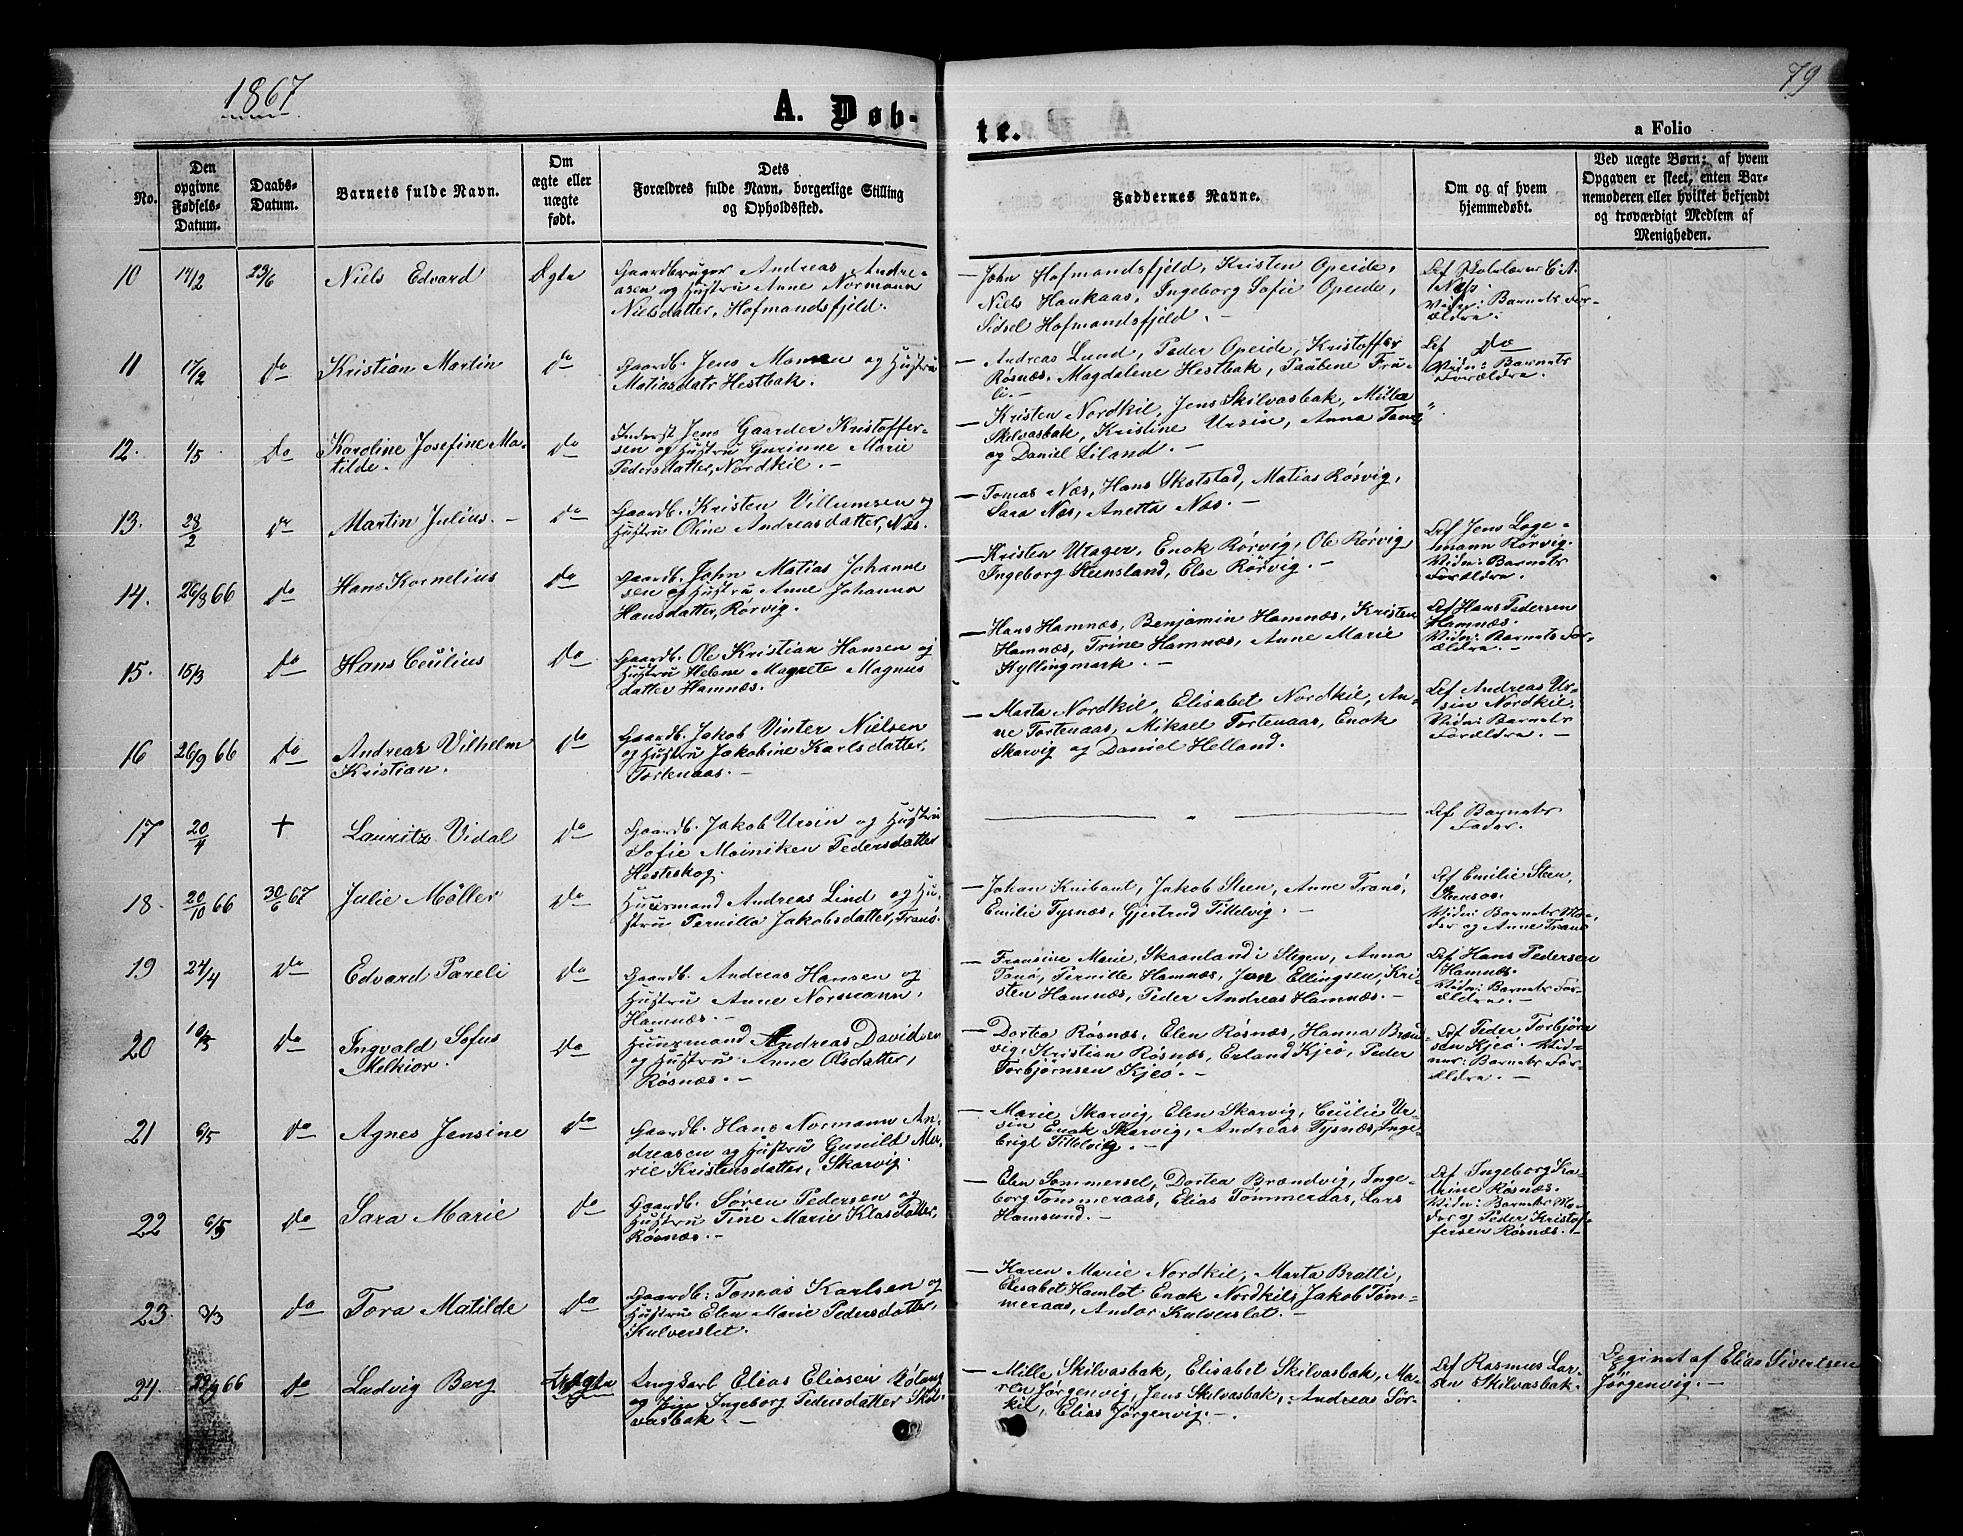 1867
79
A. Døb-
te.
a Folio
No.
Den opgivne Fødsels-Datum.
Daabs-Datum.
Barnets fulde Navn.
Om ægte eller uægte født.
Dets Forældres fulde Navn, borgerlige Stilling og Opholdssted.
Faddernes Navne.
Om og af hvem hjemmedøbt.
Ved uægte Børn; af hvem Opgaven er skeet, enten Barnemoderen eller hvilket bekjendt og troværdigt Medlem af Menigheden.
10 14/2 23/6 Niels Edvard Ægte
Gaardbruger Andreas Andre-
asen og Hustru Anne Normann
Nielsdatter, Hofmandsfjeld.
— John Hofmandsfjeld, Kristen Opeide,
Niels Haukaas, Ingeborg Sofie Opeide,
Sidsel Hofmandsfjeld. —
Af Skolelærer C. A.
Næs.
Vidn: Barnets For-
ældre.
11 17/2 Do Kristian Martin Do
Gaardb. Jens Monsen og Hustru
Matiasdatr Hestbak.
— Andreas Lund, Peder Opeide, Kristoffer
Røsnæs, Magdalene Hestbak, Paabene Fru-
li. —
Af Do
Vidn: Barnets
Forældre.
12. 1/5 Do Karoline Josefine Ma-
tilde. Do
Inderst Jens Gaarder Kristoffer-
sen og Hustru Gurinne Marie
Pedersdatter, Nordkil. —
— Kristen Nordkil, Jens Skilvasbak, Mille
Skilvasbak, Kristine Ursin, Anna
og Daniel Liland. —
13. 28/2 Do Martin Julius. — Do
Gaardb. Kristen Villumsen og
Hustru Oline Andreasdatter, Næs.
— Tomas Næs, Hans Skotstad, Matias Rørvig,
Sara Næs, Anetta Næs. —
14. 26/8 66 Do Hans Kornelius Do
Gaardb. John Matias Johanne
sen og Hustru Anne Johanna
Hansdatter, Rørvig.
— Kristen Utager, Enok Rørvig, Ole Rørvig,
Ingeborg Steensland, Else Rørvig. —
Af Jens Loge-
mann Rørvig.
Vidn: Barnets
Forældre.
15. 15/3 Do Hans Cecilius Do
Gaardb. Ole Kristian Hansen og
Hustru Helene Magrete Magnus
datter Hamnæs.
— Hans Hamnæs, Benjamin Hamnæs, Kristen
Hamnæs, Trine Hamnæs, Anne Marie
Kyllingmark. —
Af Hans Pedersen
Hamnæs.
Vidn: Barnets For-
ældre. —
16 26/9 66 Do Andreas Vilhelm
Kristian. Do
Gaardb. Jakob Vinter Nielsen
og Hustru Jakobine Karlsdatter,
Tortenaas. —
— Marta Nordkil, Elisabet Nordkil, An-
ne Tortenaas, Mikael Tortenaas, Enok
Skarvig og Daniel Helland.
Af Andreas Ur-
sin Nordkil.
Vidn: Barnets
Forældre. —
17 20/4 + Lauritz Vidal Do
Gaardb. Jakob Ursin og Hustru
Sofie Moiniken Pedersdatter
Hesteskog.
— " —
Af Barnets
Fader.
18. 20/10 66 30/6 67 Julie Møller Do
Huusmand Andreas Lind og Hu-
stru Pernille Jakobsdatter, Tranø.
— Johan Knibant, Jakob Steen, Anne Tranø,
Emilie Tysnæs, Gjertrud Tillelvig. —
Af Emilie Steen,
Vidn: Barnets Mo-
der og Anne Tranø
19 24/4 Do Edvard Pareli Do
Gaardb. Andreas Hansen og
Hustru Anne Normann,
Hamnæs. —
— Fransine Marie, Skaanland i Stegen, Anna
Tanø, Pernille Hamnæs, Jan Ellingsen, Kri-
sten Hamnæs, Peder Andreas Hamnæs. —
Af Hans Pedersen
Hamnæs.
Vidn: Barnets For-
ældre. —
20 Do Ingvald Sofus
Melkior. Do
Huusmand Andreas Davidsen
og Hustru Anne Olsdatter,
Røsnæs. —
— Dortea Røsnæs, Elen Røsnæs, Hanna Brænd-
vig, Kristian Røsnæs, Erland Kjeø, Peder
Torbjørnsen Kjeø. —
Af Peder Torbjørn
sen Kjeø. Vid-
ner: Barnets For-
ældre. —
21 6/5 Do Agnes Jensine Do
Gaardb. Hans Normann An-
dreasen og Hustru Gunild Ma-
rie Kristensdatter, Skarvig.
— Marie Skarvig, Elen Skarvig, Cecilie Ur-
sin Enok Skarvig, Andreas Tysnæs, Inge-
brigt Tillelvig —
22 6/5 Do Sara Marie Do
Gaardb. Søren Pedersen og
Hustru Tine Marie Klasdatter,
Røsnæs. —
— Elen Sommersel, Dortea Brændvig, Inge-
borg Tømmeraas, Elias Tømmeraas, Lars
Hamsund. —
Af Ingeborg Ka-
trine Røsnæs.
Vidn: Barnets Mo-
der og Peder Kristof-
fersen Røsnæs. —
23. 3/3 Do Tora Matilde Do
Gaardb: Tomas Karlsen og
Hustru Elen Marie Pedersdatter,
Kulverslet.
— Karen Marie Nordkil, Marta Bratli,
Elisabet Hamlot Enok Nordkil, Jakob Tøm-
meraas, Andor Kulverslet. —
24. 66 Do Ludvig Berg Uægte
Ungkarl Elias Eliasen
og Pige Ingeborg Pedersdatter Skil-
vasbak —
— Mille Skilvasbak, Elisabet Skilvasbak, Ma-
ren Jørgenvig, Jens Skilvasbak, Andreas Sør-
kil, Elias Jørgenvig. —
Af Rasmus Lar-
sen Skilvasbak.
Opgivet af Elias Sivertsen
Jørgenvig. —